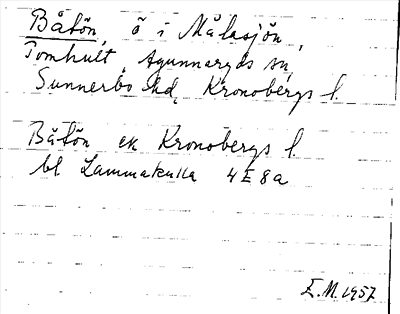 Båtön, ö i Målasjön,
Tomhult, Agunnaryds sn,
Sunnerbo hd, Kronobergs l.
Båtön ek Kronobergs l.
bl Lammakulla 4E8a
E.M. 1957